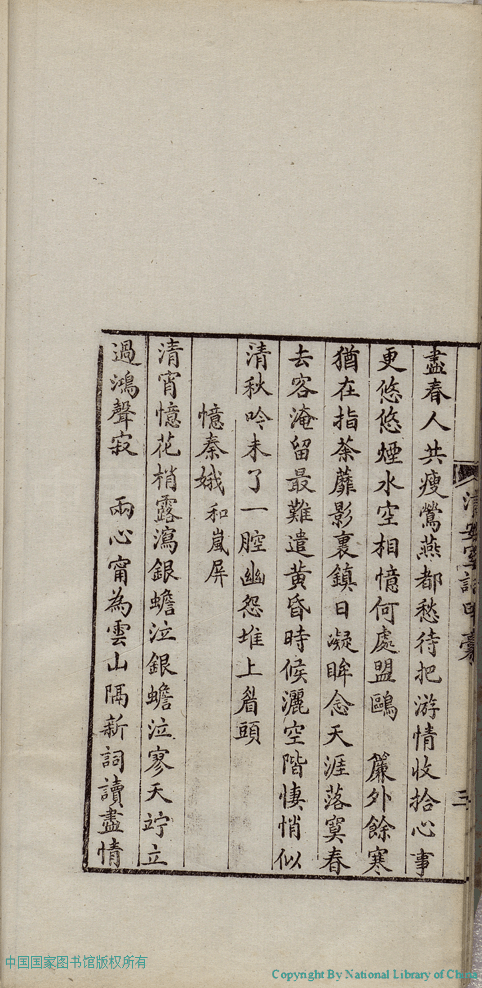 盡春人共瘦鶯燕都愁待把游情收拾心事
更悠悠煙水空相憶何處盟鷗　簾外餘寒
猶在指荼蘼影裏鎮日凝眸念天涯落寞春
去容淹留最難遣黃昏時候灑空階悽悄似
清秋吟未了一腔幽怨堆上眉頭
憶秦娥 和嵐屏
清宵憶花梢露瀉銀蟾泣銀蟾泣寥天竚立
過鴻聲寂　兩心甯為雲山隔新詞讀盡情
三
中国国家图书馆版权所有
Copyright By National Library of China